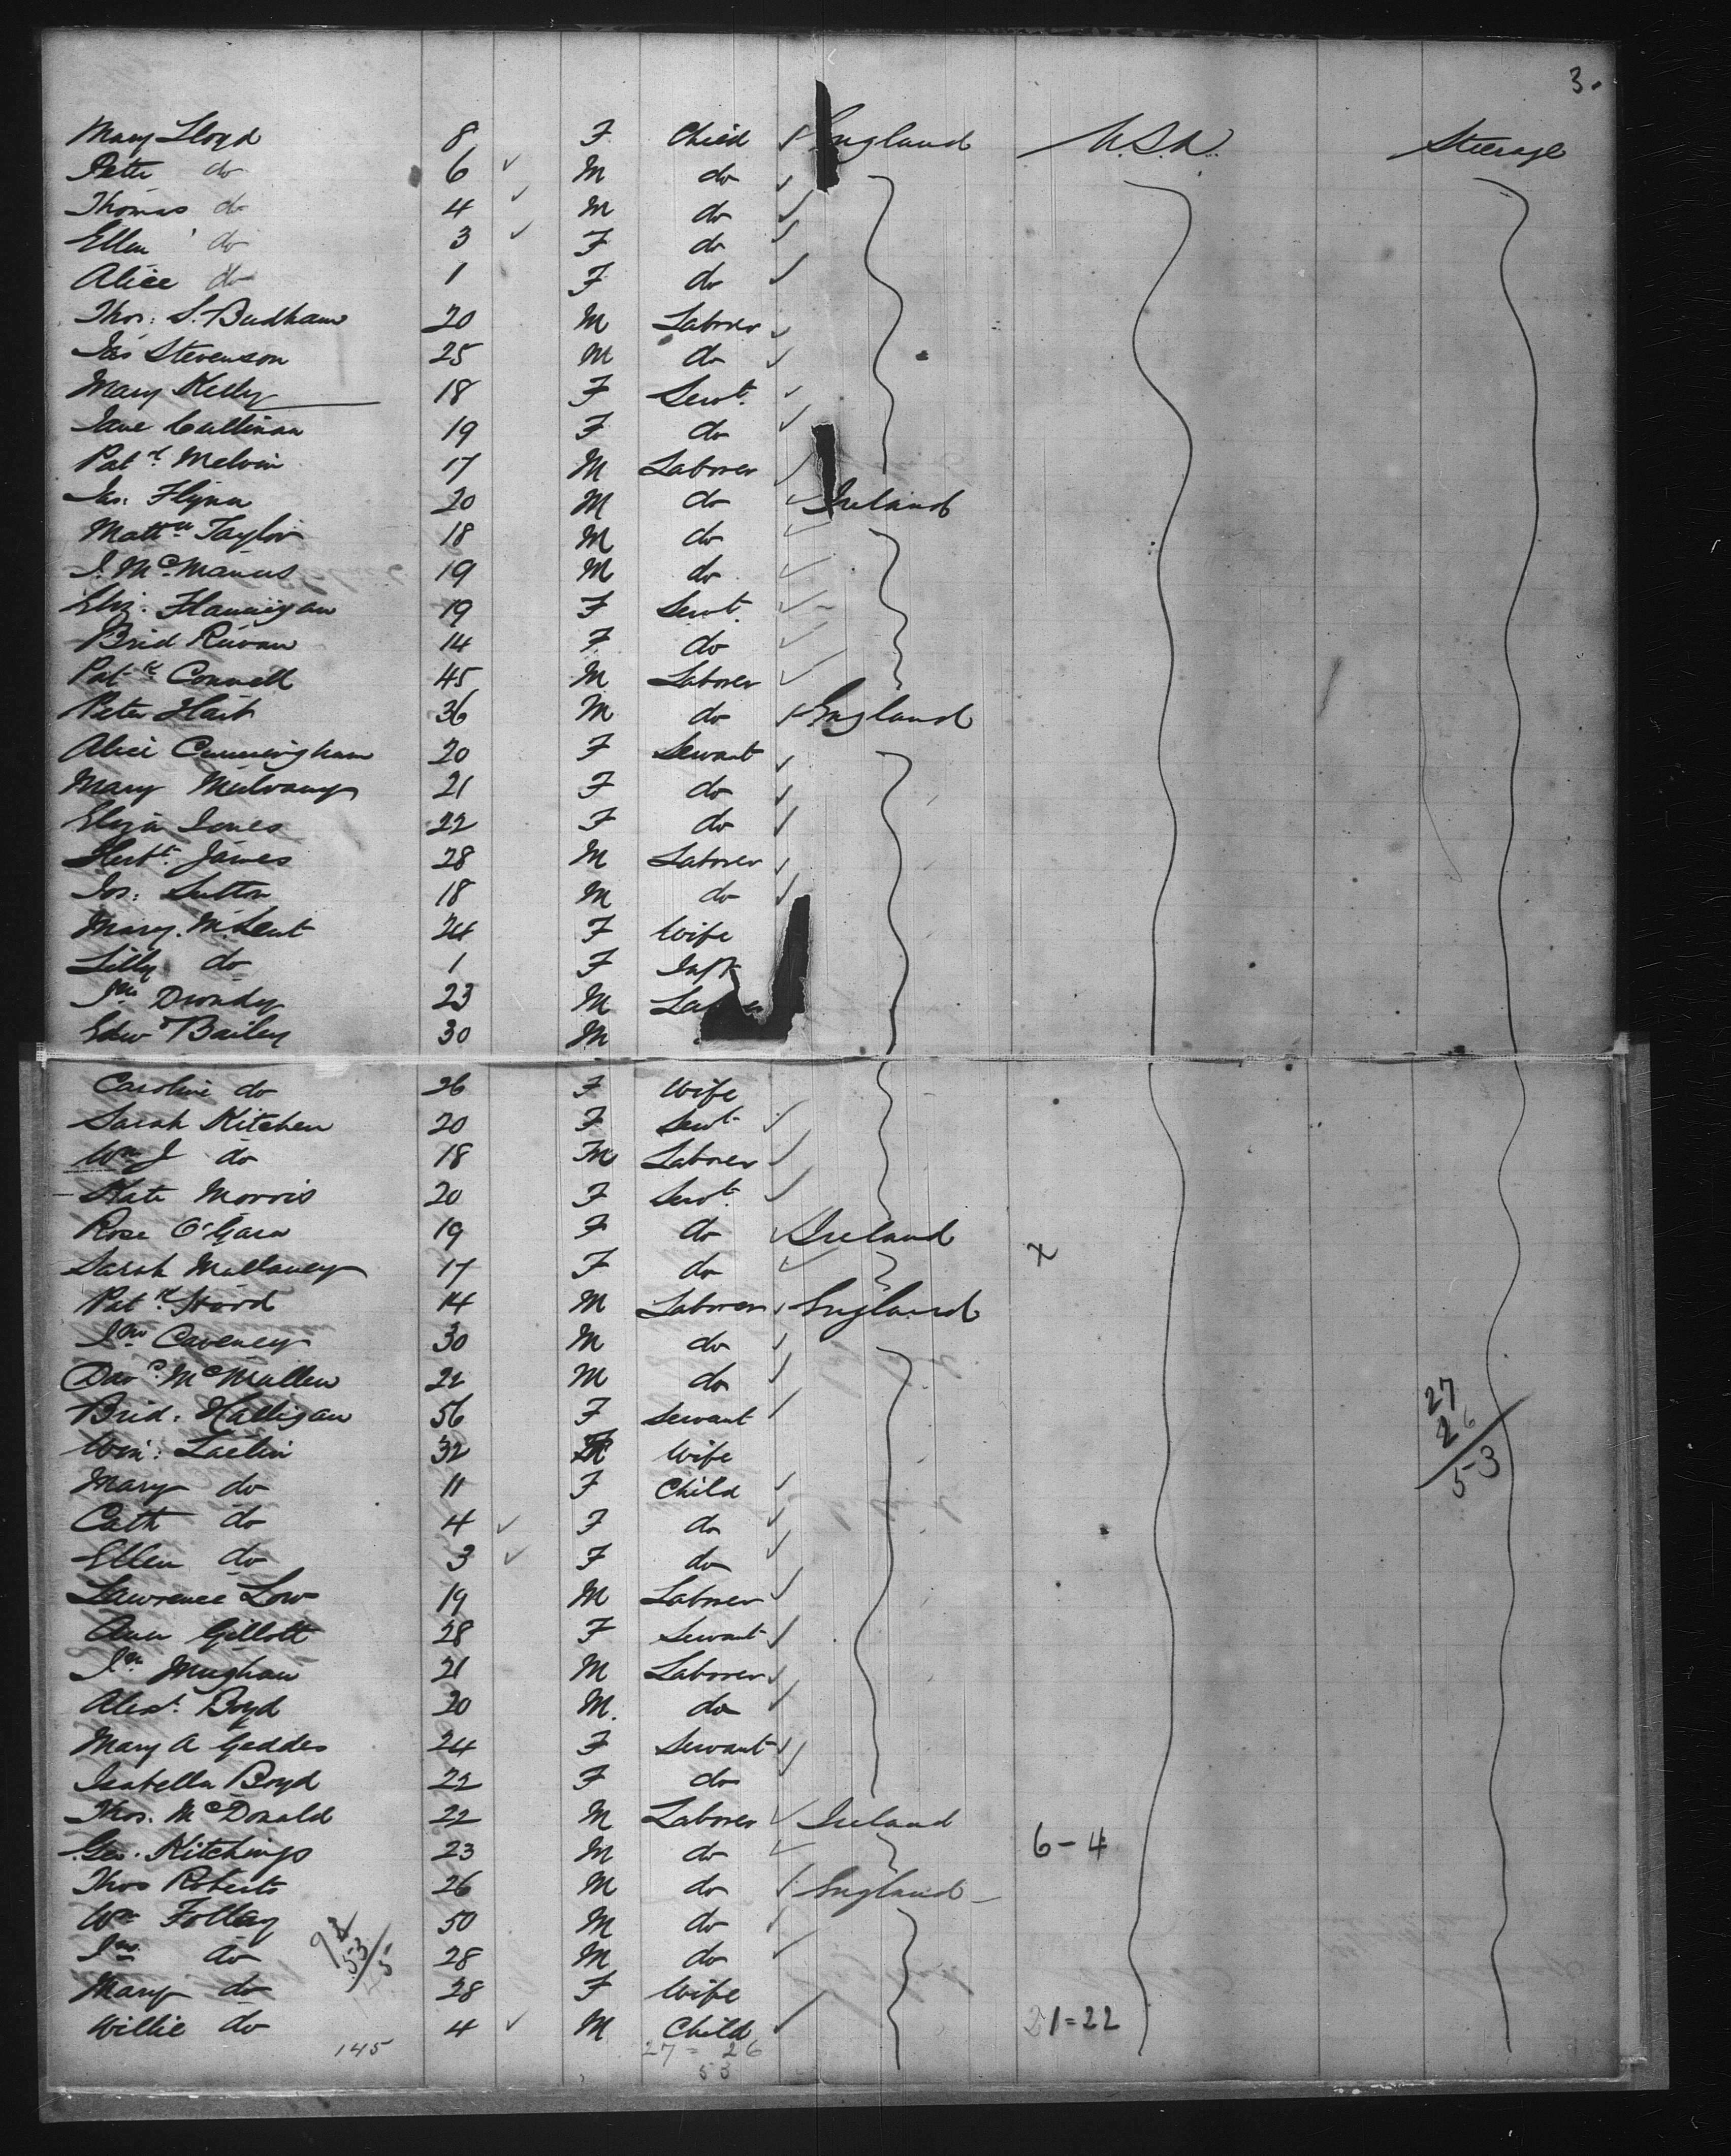 3.
Mary Lloyd 8 F Child England U.S.A. Steerage
Peter do 6 M do
Thomas do 4 M do
Ellen do 3 F do
Alice do 1 F do
Thos: S. Budham 20 M Laborer
Jas Stevenson 25 M do
Mary Kelly 18 F Servt.
Jane Cullinan 19 F do
Patk Melvin 17 M Laborer
Jas. Flynn 20 M do Ireland
Matthw Taylor 18 M do
J. McManus 19 M do
Eliz. Flannigan 19 F Servt.
Brid 14 F do
Patk Connell 45 M Laborer
Peter 36 M do England
Alice Cunningham 20 F Servant
Mary Mulvany 21 F do
Eliza Jones 22 F do
Herbt. James 28 M Laborer
Jos: Sutton 18 M do
Mary 24 F Wife
Lilly do 1 F Inft
Jno 23 M
Edwd Bailey 30 M
Caroline do 26 F Wife
Sarah Kitchen 20 F Servt
Wm J do 18 M Laborer
Kate Morris 20 F Servt.
Rose O'Gara 19 F do Ireland x
Sarah Mullaney 17 F do
Patk 14 M Laborer England
Jno Caveney 30 M do
Davd. McMullen 22 M do
Brid. Halligan 56 F Servant
Win: 32 F Wife
Mary do 11 F Child
Cath do 4 F do
Ellen do 3 F do
Lawrence Low 19 M Laborer
Ann Gillott 28 F Servant
Jno Mughan 21 M Laborer
Alexr. Boyd 20 M. do
Mary A Geddes 24 F Servant
Isabella Boyd 22 F do
Thos. McDonald 22 M Laborer Ireland
Geo. Kitchings 23 M do 6-4
Thos Roberts 26 M do England
Wm 50 M do
Jno. do 28 M do
Mary do 28 F Wife
Willie do 4 M Child 21=22
145 27 = 26
53
27
26
53